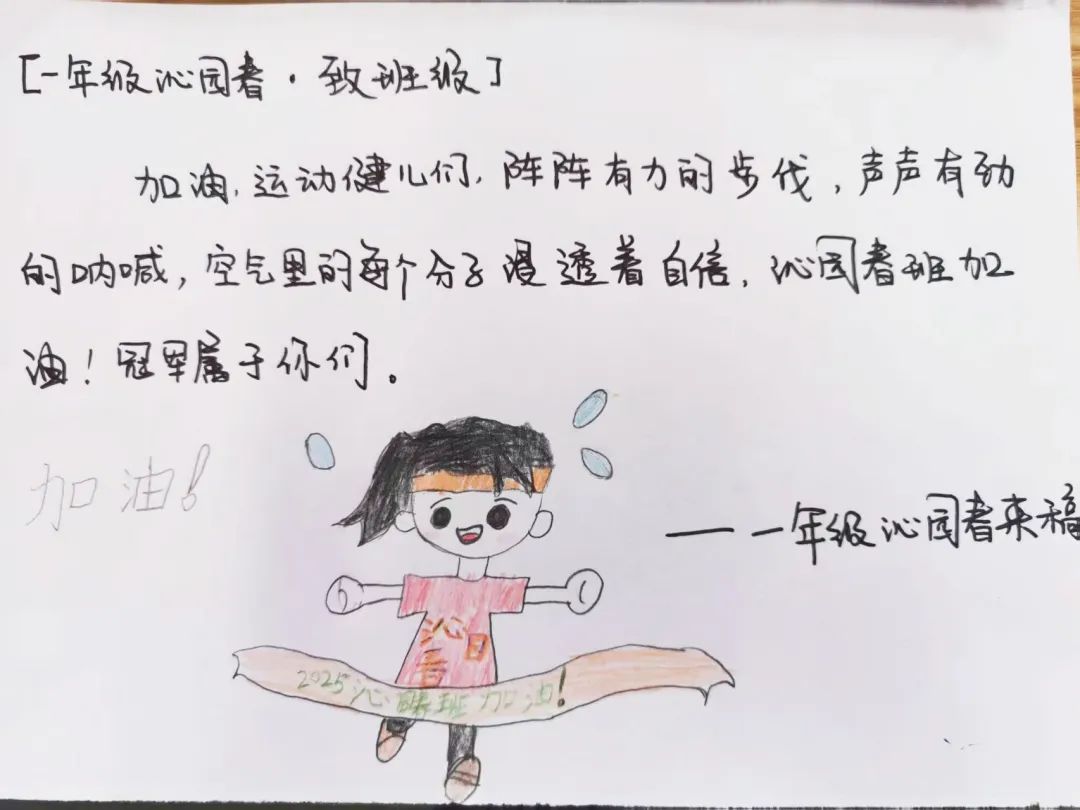 [一年级沁园春·致班级]
加油,运动健儿们,阵阵有力的步伐,声声有劲
的呐喊,空气里的每个分子浸透着自信,沁园春班加
油!冠军属于你们。
加油!
——一年级沁园春来稿
沁园
春
2025沁园春班加油!